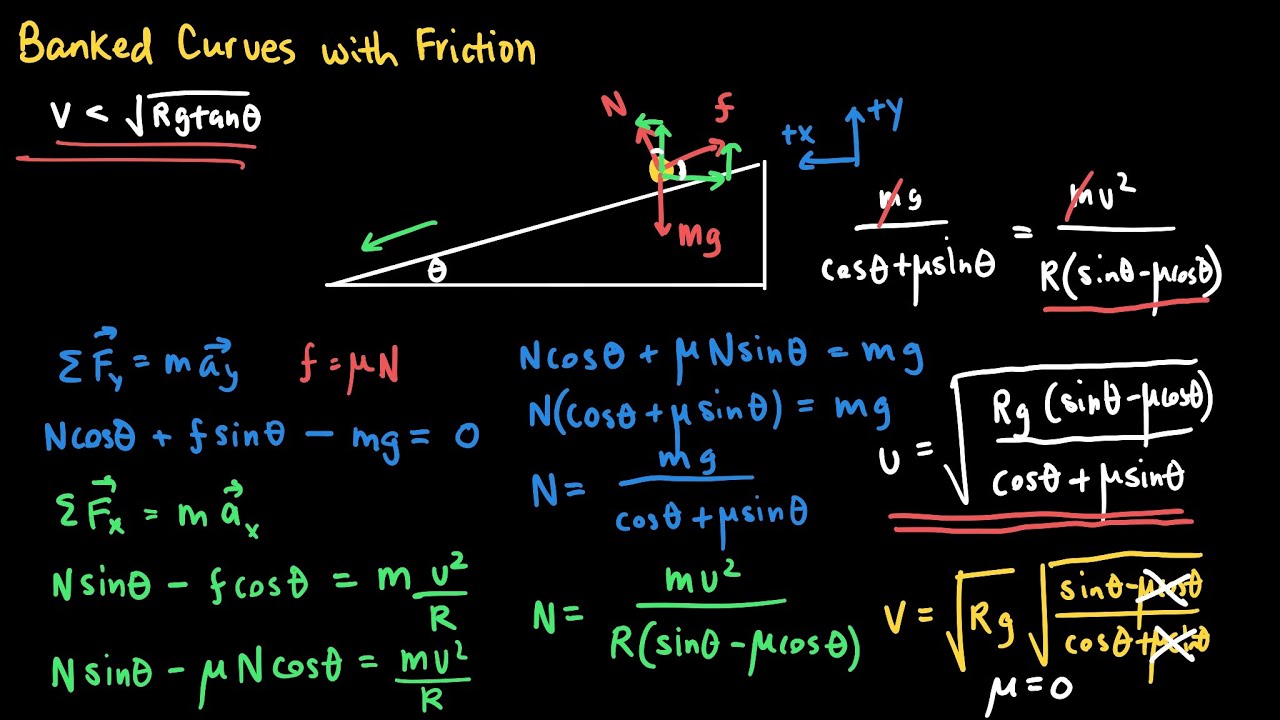 Banked Curves with Friction
V < √Rgtanθ
N
f
+x
+y
mg
θ
mg / cosθ+μsinθ = mv² / R(sinθ-μcosθ)
ΣF⃗y = ma⃗y
f = μN
Ncosθ + fsinθ - mg = 0
ΣF⃗x = ma⃗x
Nsinθ - fcosθ = m v²/R
Nsinθ - μNcosθ = mv²/R
Ncosθ + μNsinθ = mg
N(cosθ + μsinθ) = mg
N = mg / cosθ+μsinθ
N = mv² / R(sinθ-μcosθ)
v = √(Rg(sinθ-μcosθ) / cosθ+μsinθ)
V = √Rg √(sinθ-μcosθ / cosθ+μsinθ)
μ=0